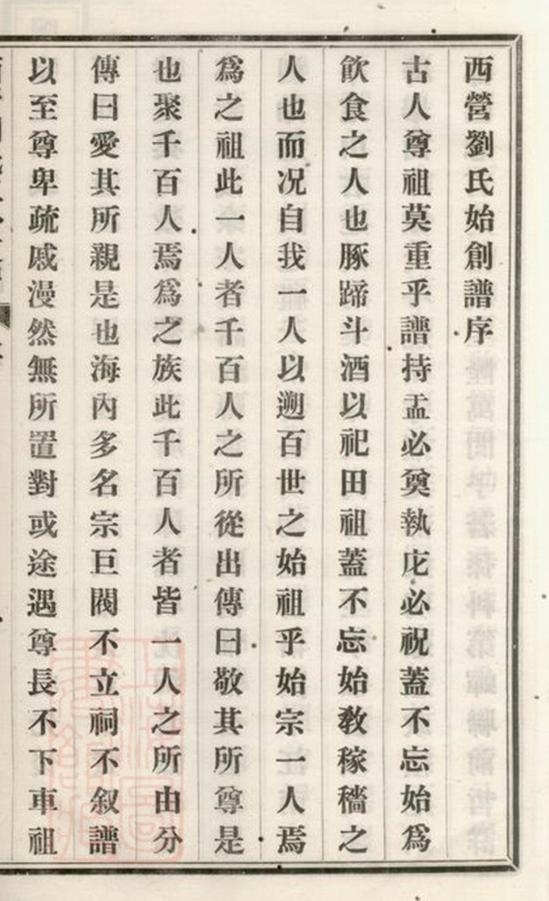 西營劉氏始創譜序
古人尊祖莫重乎譜持盂必奠執庀必祝蓋不忘始爲
飮食之人也豚蹄斗酒以祀田祖蓋不忘始敎稼穡之
人也而况自我一人以遡百世之始祖乎始宗一人焉
爲之祖此一人者千百人之所從出傳曰敬其所尊是
也聚千百人焉爲之族此千百人者皆一人之所由分
傳曰愛其所親是也海內多名宗巨閥不立祠不叙譜
以至尊卑疏戚漫然無所置對或途遇尊長不下車祖